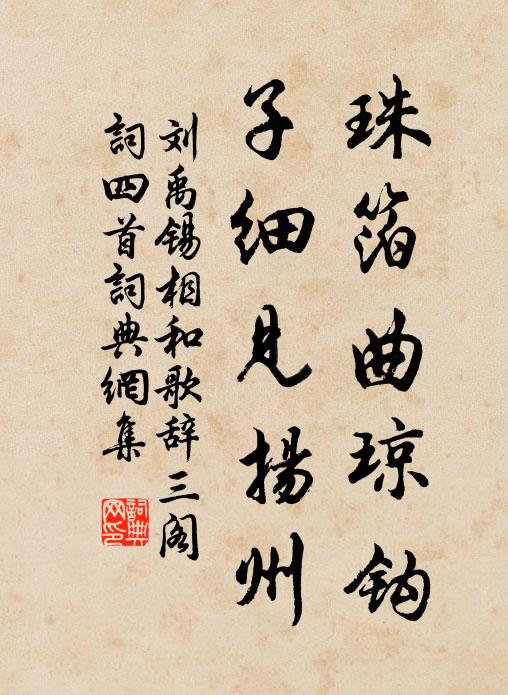 珠箔曲琼钩
子细见揚州
刘禹锡相和歌辞三阁
詞四首詞典網集
詞典网印